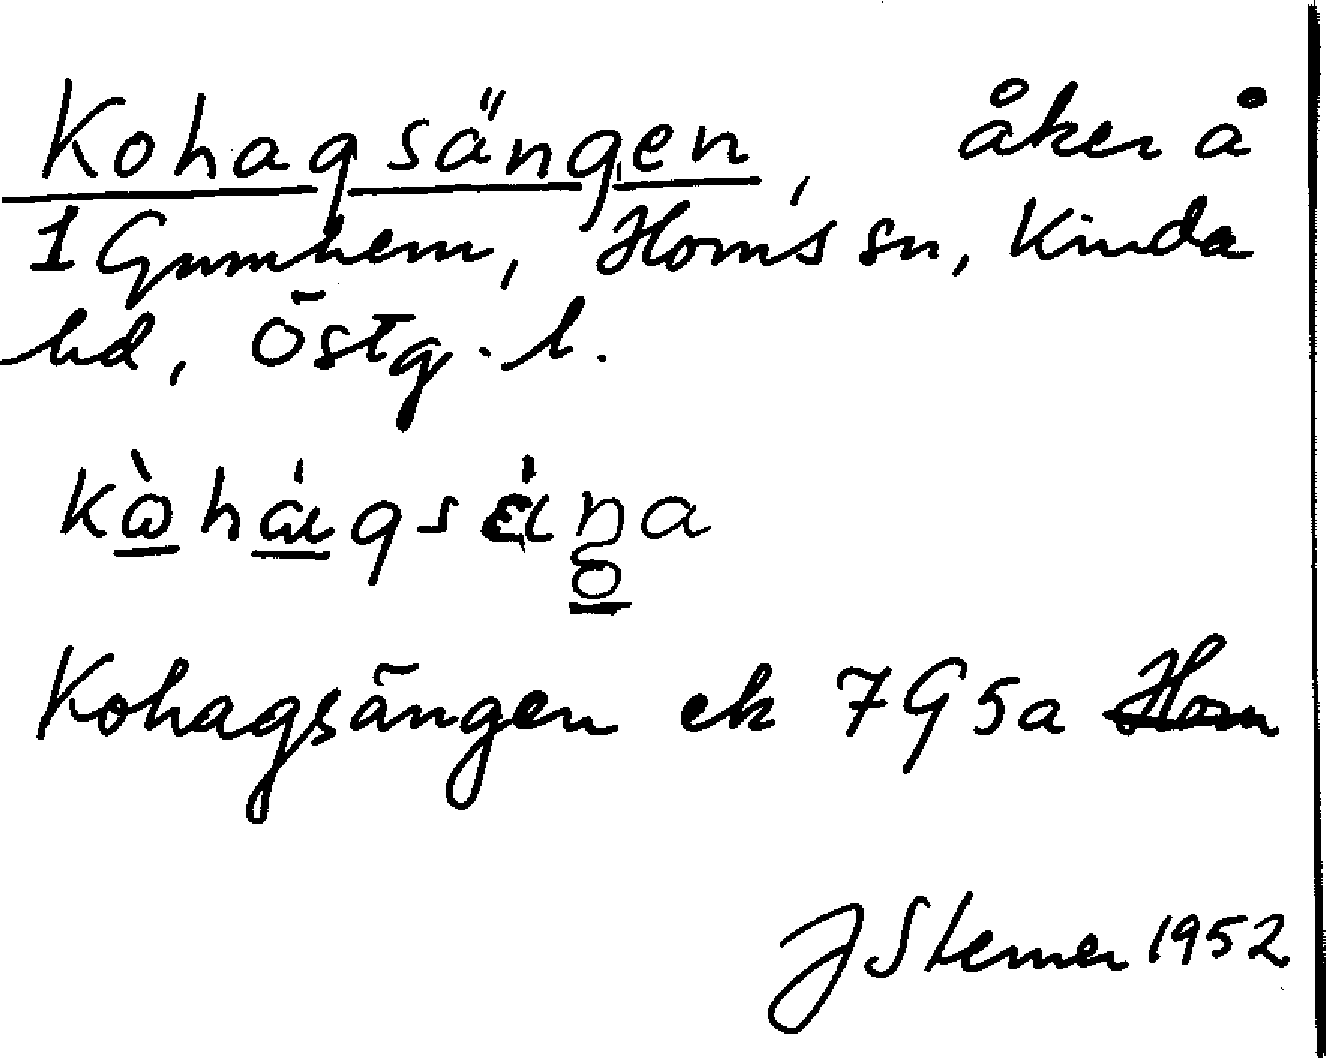 Kohagsängen, åker å
1 Gumhem, Horns sn, Kinda
hd, Östg. l.
Kohagsängen ek 7G5a Horn
J Sterner 1952